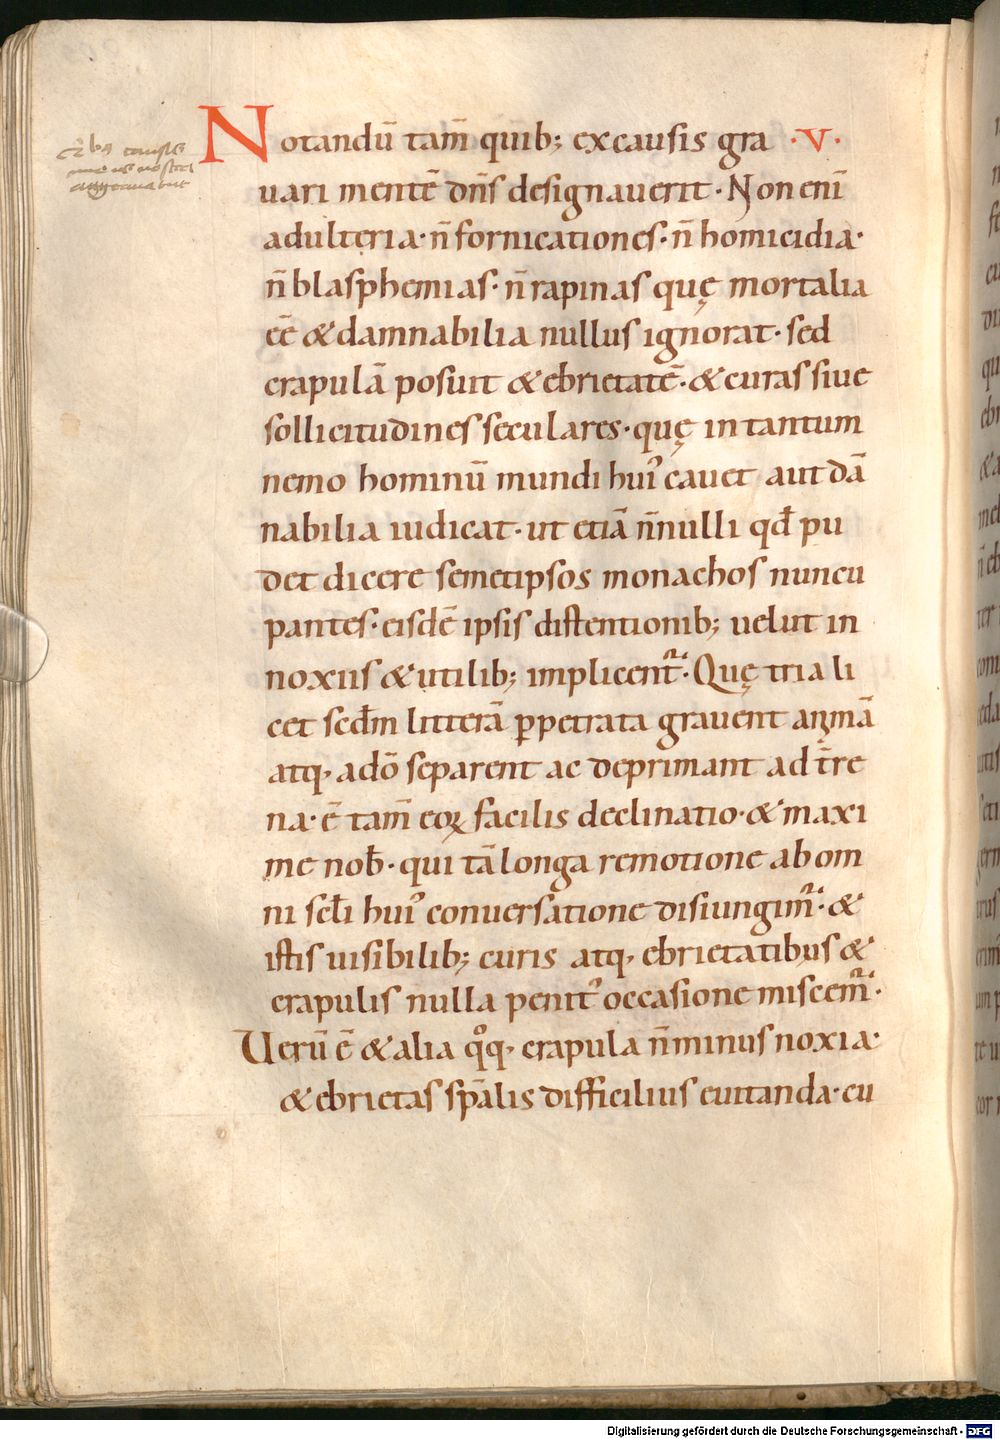 Notandū tam̄ quib; ex causis gra ·V·
uari mentē dn̄s designauerit· Non eni̅
adulteria· n̄ fornicationes· n̄ homicidia·
n̄ blasphemias· n̄ rapinas quę mortalia
eē & damnabilia nullus ignorat· sed
crapulā posuit & ebrietatē· & curas siue
sollicitudines seculares· quę in tantum
nemo hominū mundi hui᾽ cauet aut dā
nabilia iudicat· ut etiā n̄nulli qd̄ pu
det dicere semetipsos monachos nuncu
pantes· eisdē ipsis distentionib; uelut in
noxiis & utilib; implicent᷑· Quę tria li
cet scd̄m litterā ꝑpetrata grauent animā
atq· a dō separent ac deprimant ad t̄re
na· ē tam̄ eoꝝ facilis declinatio· & maxi
me nob̄· qui tā longa remotione ab om
ni scl̄i hui᾽ conuersatione disiungim᷑· &
istis uisibilib; curis atq· ebrietatibus &
crapulis nulla penit᾽ occasione miscem᷑·
Uerū ē & alia qͦq· crapula n̄ minus noxia·
& ebrietas sp̄alis difficilius euitanda· cu
Digitalisierung gefördert durch die Deutsche Forschungsgemeinschaft - DFG